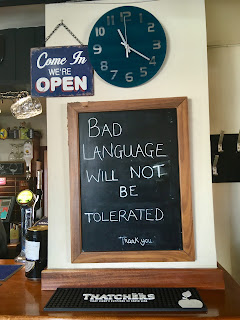 Come In
WE'RE
OPEN
BAD
LANGUAGE
WILL NOT
BE
TOLERATED
Thank you
THATCHERS